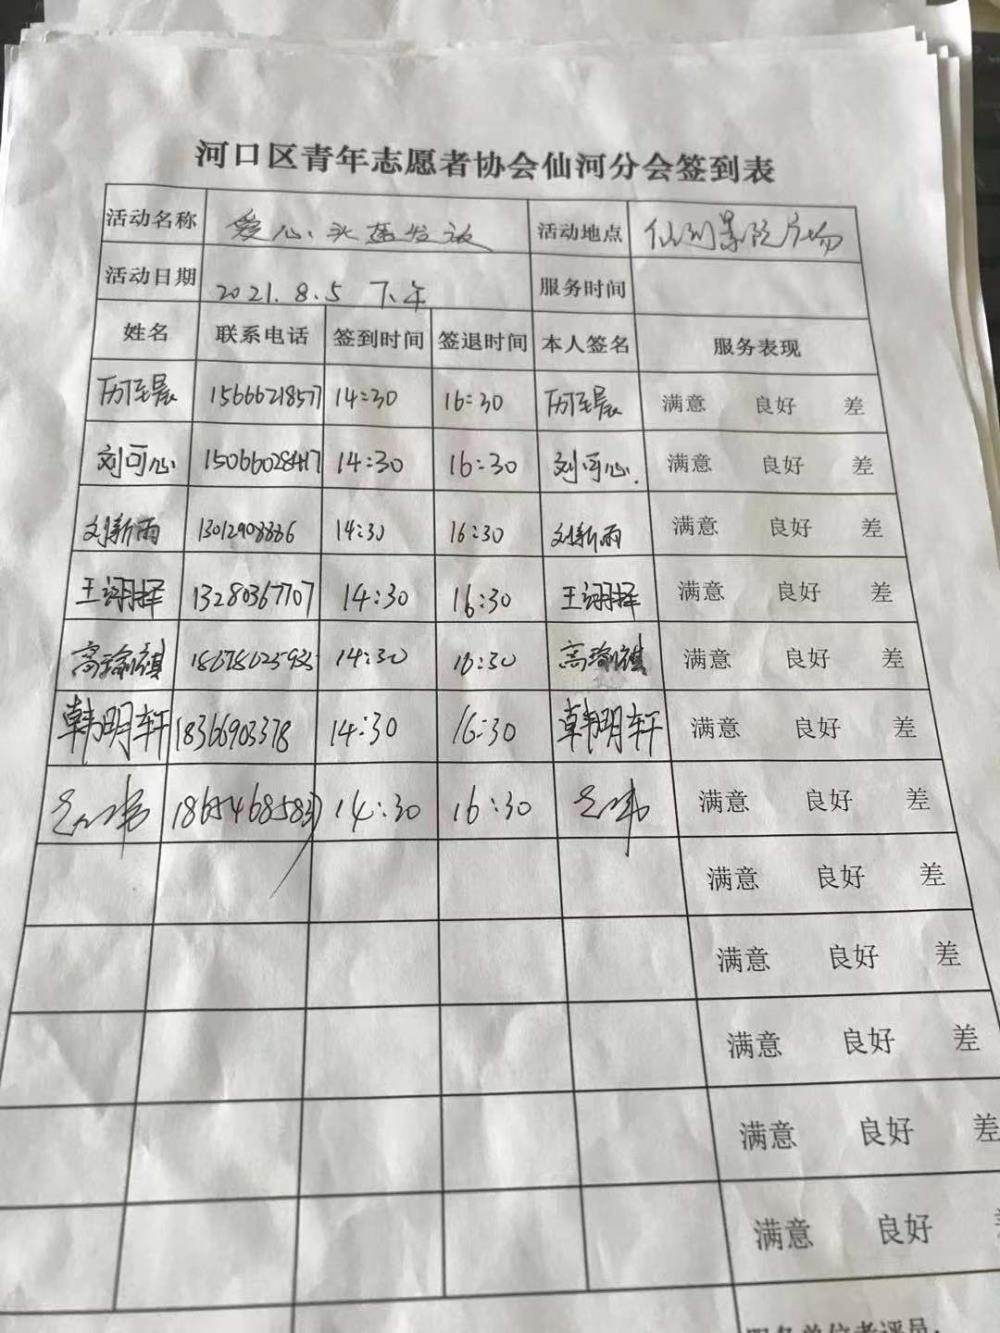 河口区青年志愿者协会仙河分会签到表
活动名称 爱心头盔发放 活动地点 仙河影院广场
活动日期 2021.8.5 下午 服务时间
姓名 联系电话 签到时间 签退时间 本人签名 服务表现
15666218577 14:30 16:30 满意 良好 差
刘可心 15066028417 14:30 16:30 刘可心. 满意 良好 差
刘新雨 14:30 16:30 刘新雨 满意 良好 差
王诩择 13280367707 14:30 16:30 王诩择 满意 良好 差
14:30 16:30 满意 良好 差
韩明轩 18366903378 14:30 16:30 韩明轩 满意 良好 差
14:30 16:30 满意 良好 差
满意 良好 差
满意 良好 差
满意 良好 差
满意 良好 差
满意 良好